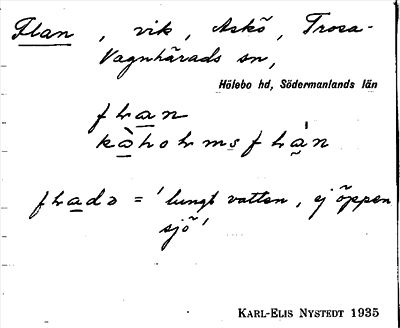 Flan, vik, Askö, Trosa-
Vagnhärads sn,
Hölebo hd, Södermanlands län
flan
flada = 'lungt vatten, ej öppen
sjö'
KARL-ELIS NYSTEDT 1935